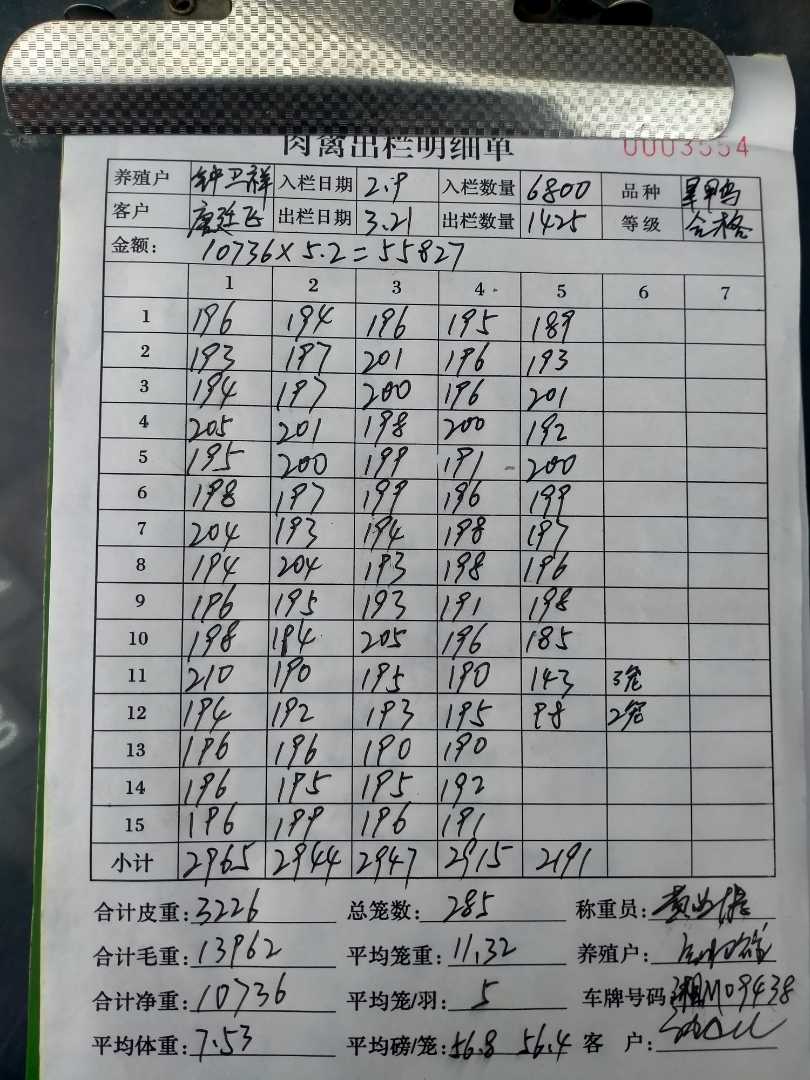 肉禽出栏明细单 0003554
养殖户 钟卫祥 入栏日期 2.9 入栏数量 6800 品种
客户 唐廷飞 出栏日期 3.21 出栏数量 1425 等级 合格
金额: 10736×5.2=55827
1 2 3 4 5 6 7
1 196 194 196 195 189
2 193 197 201 196 193
3 194 197 200 196 201
4 205 201 198 200 192
5 195 200 199 191 200
6 198 197 199 196 199
7 204 193 194 198 197
8 194 204 193 198 196
9 196 195 193 191 198
10 198 194 205 196 185
11 210 190 195 190 143 3笼
12 194 192 193 195 98 2笼
13 196 196 190 190
14 196 195 195 192
15 196 199 196 191
小计 2965 2944 2947 2915 2191
合计皮重: 3226 总笼数: 285 称重员:
合计毛重: 13962 平均笼重: 11.32 养殖户:
合计净重: 10736 平均笼/羽: 5 车牌号码: 湘M09438
平均体重: 7.53 平均磅/笼: 56.8 56.4 客 户: